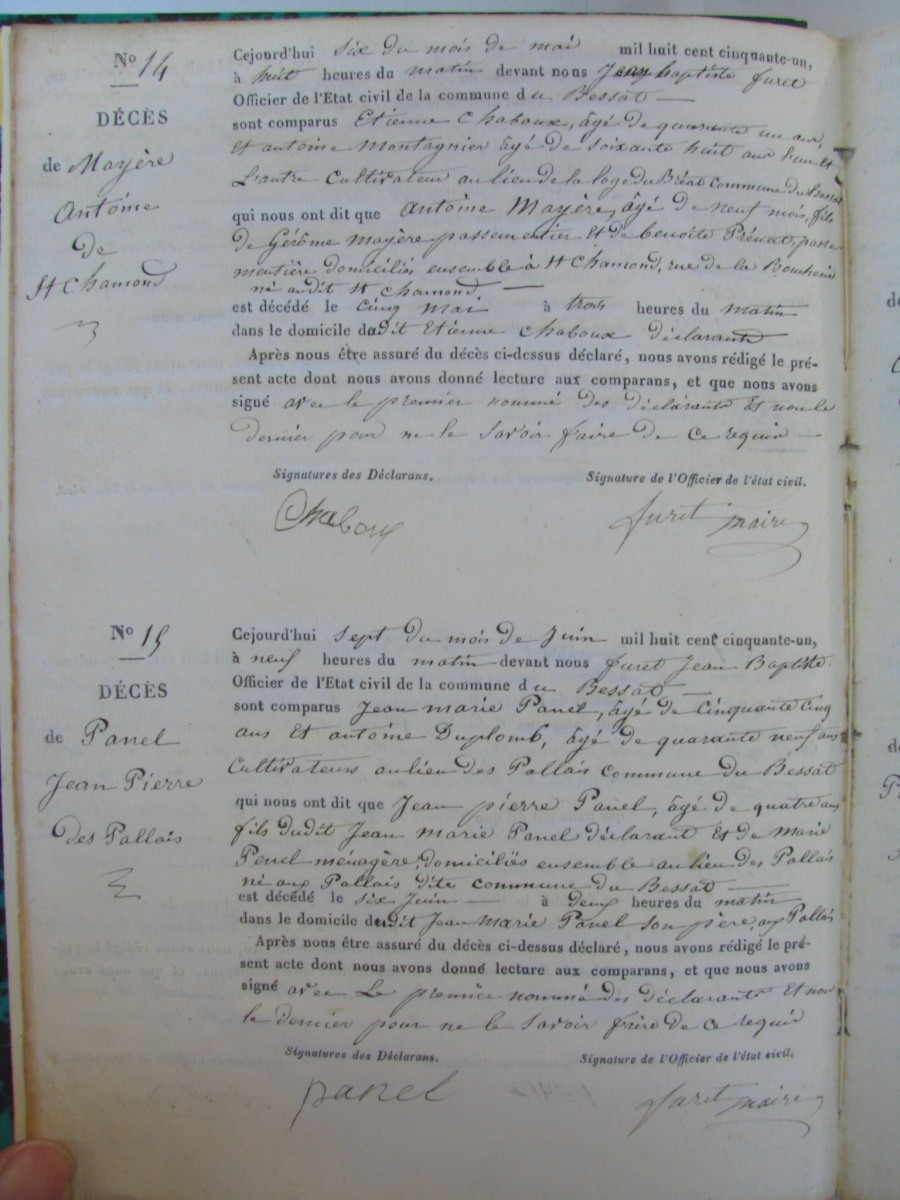 No 14
DÉCÈS
de Mayère
Antoine
de
St Chamond
Cejourd'hui six du mois de mai mil huit cent cinquante-un,
à huit heures du matin devant nous Jean baptiste furet
Officier de l'Etat civil de la commune du Bessat
sont comparus Etienne Chaboux, âgé de quarante un ans,
Et antoine Montagnier âgé de soixante huit ans l'un et
L'autre Cultivateur au lieu de la loge du Bréat Commune du Bessat
qui nous ont dit que Antoine Mayère, âgé de neuf mois, fils
de Gérôme mayère passementier et de benoite Prénat, passe-
mentière domiciliés ensemble à St Chamond, rue de la Boucherie
né audit St Chamond
est décédé le cinq mai à trois heures du matin
dans le domicile dudit Etienne Chaboux déclarant
Après nous être assuré du décès ci-dessus déclaré, nous avons rédigé le pré-
sent acte dont nous avons donné lecture aux comparans, et que nous avons
signé avec le premier nommé des déclarants Et non le
dernier pour ne le Savoir faire de ce requis
Signatures des Déclarans. Signature de l'Officier de l'état civil.
Chaboux furet maire
No 15
DÉCÈS
de Panel
Jean Pierre
des Pallais
Cejourd'hui sept du mois de Juin mil huit cent cinquante-un,
à neuf heures du matin devant nous furet Jean Baptiste
Officier de l'Etat civil de la commune du Bessat
sont comparus Jean marie Panel, âgé de Cinquante Cinq
ans Et antoine Duplomb, âgé de quarante neuf ans
Cultivateurs au lieu des Pallais commune du Bessat
qui nous ont dit que Jean pierre Panel, âgé de quatre ans
fils dudit Jean marie Panel déclarant Et de Marie
Penel ménagère, domiciliés ensemble au lieu des Pallais
né aux Pallais dite commune du Bessat
est décédé le six Juin à deux heures du matin
dans le domicile dudit Jean Marie Panel son père, aux Pallais
Après nous être assuré du décès ci-dessus déclaré, nous avons rédigé le pré-
sent acte dont nous avons donné lecture aux comparans, et que nous avons
signé avec Le premier nommé des déclarants Et non
le dernier pour ne le Savoir faire de ce requis
Signatures des Déclarans. Signature de l'Officier de l'état civil.
panel furet maire